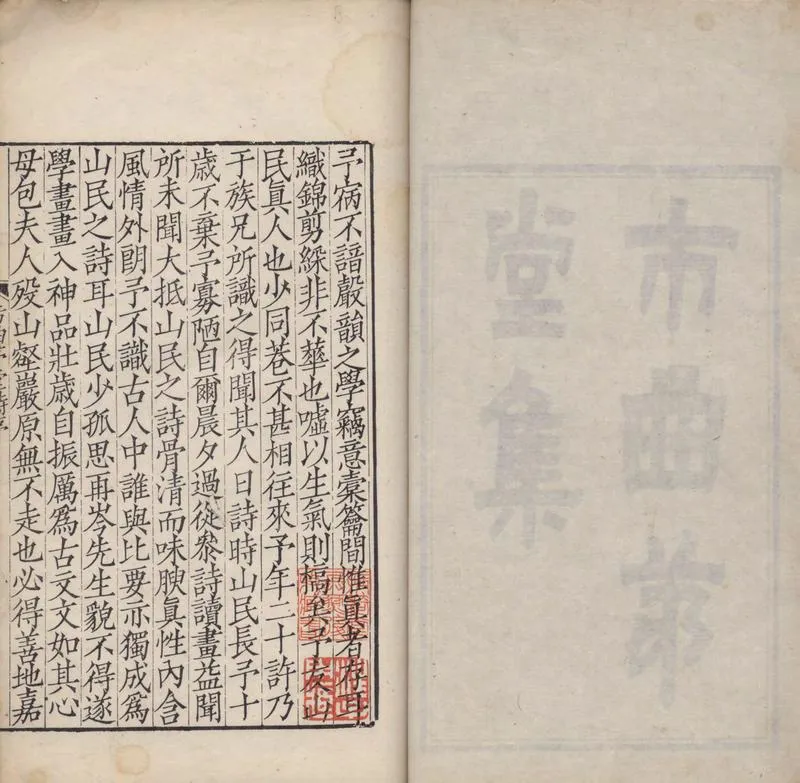 予病不諳嚴韻之學竊意橐籥間惟真者存耳
織錦剪綵非不華也噓以生氣則槁矣予友山
民眞人也少同巷不甚相往來予年二十許乃
于族兄所識之得聞其人日詩時山民長予十
歲不棄予寡陋自爾晨夕過從參詩讀畫益聞
所未聞大抵山民之詩骨清而味腴眞性內含
風情外朗予不識古人中誰與比要亦獨成為
山民之詩耳山民少孤思再岑先生貌不得遂
學畫畫入神品壯歲自振厲爲古文文如其心
母包夫人歿山壑巖原無不走也必得善地嘉